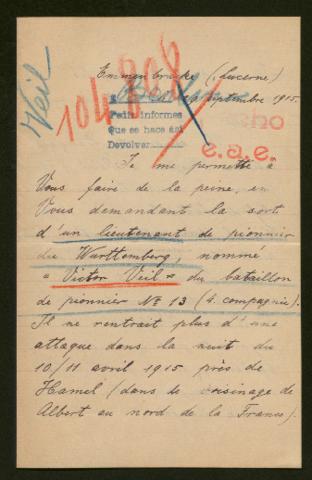 Emmenbrücke (Lucerne)
septembre 1915.
Veil
104.808
Pedir informes
Que se hace así
Devolver
e.a.e.
Je me permetté à
Vous faire de la peine, en
Vous demandant la sort
d'un lieutenant de pionnier
du Wurttemberg, nommé
"Victor Veil" du bataillon
de pionnier No 13 (4. compagnie).
Il ne rentrait plus d'une
attaque dans la nuit du
10/11 avril 1915 près de
Hamel (dans le voisinage de
Albert au nord de la France).